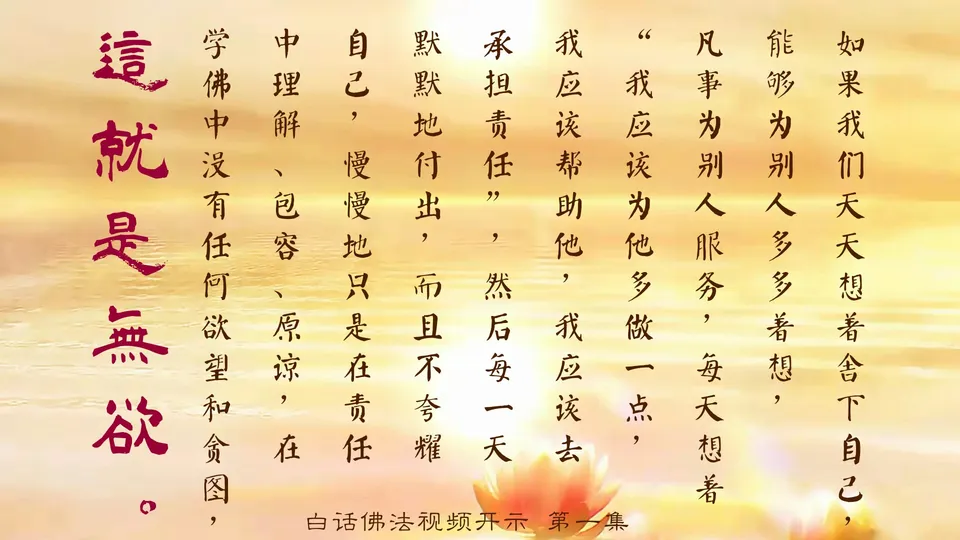 如果我们天天想着舍下自己，
能够为别人多多着想，
凡事为别人服务，每天想着
“我应该为他多做一点，
我应该帮助他，我应该去
承担责任”，然后每一天
默默地付出，而且不夸耀
自己，慢慢地只是在责任
中理解、包容、原谅，在
学佛中没有任何欲望和贪图，
這就是無欲。
白话佛法视频开示 第一集